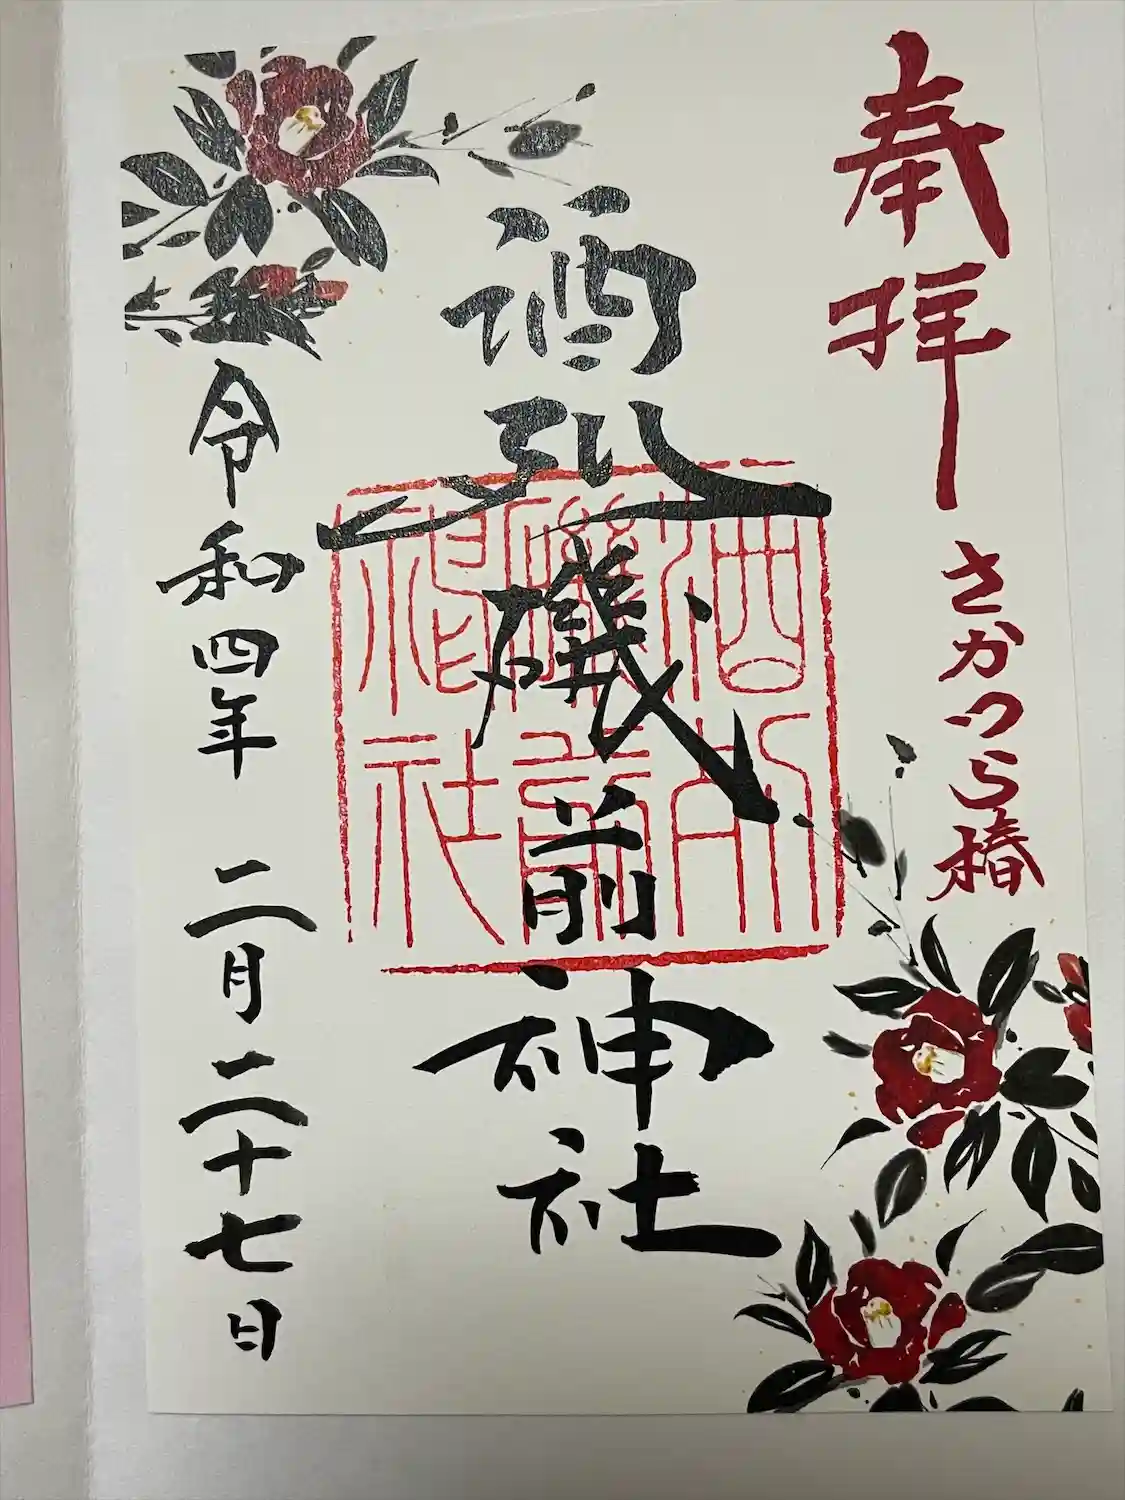 奉拝
さかつら椿
酒列磯前神社
酒列
磯前
神社
令和四年 二月二十七日